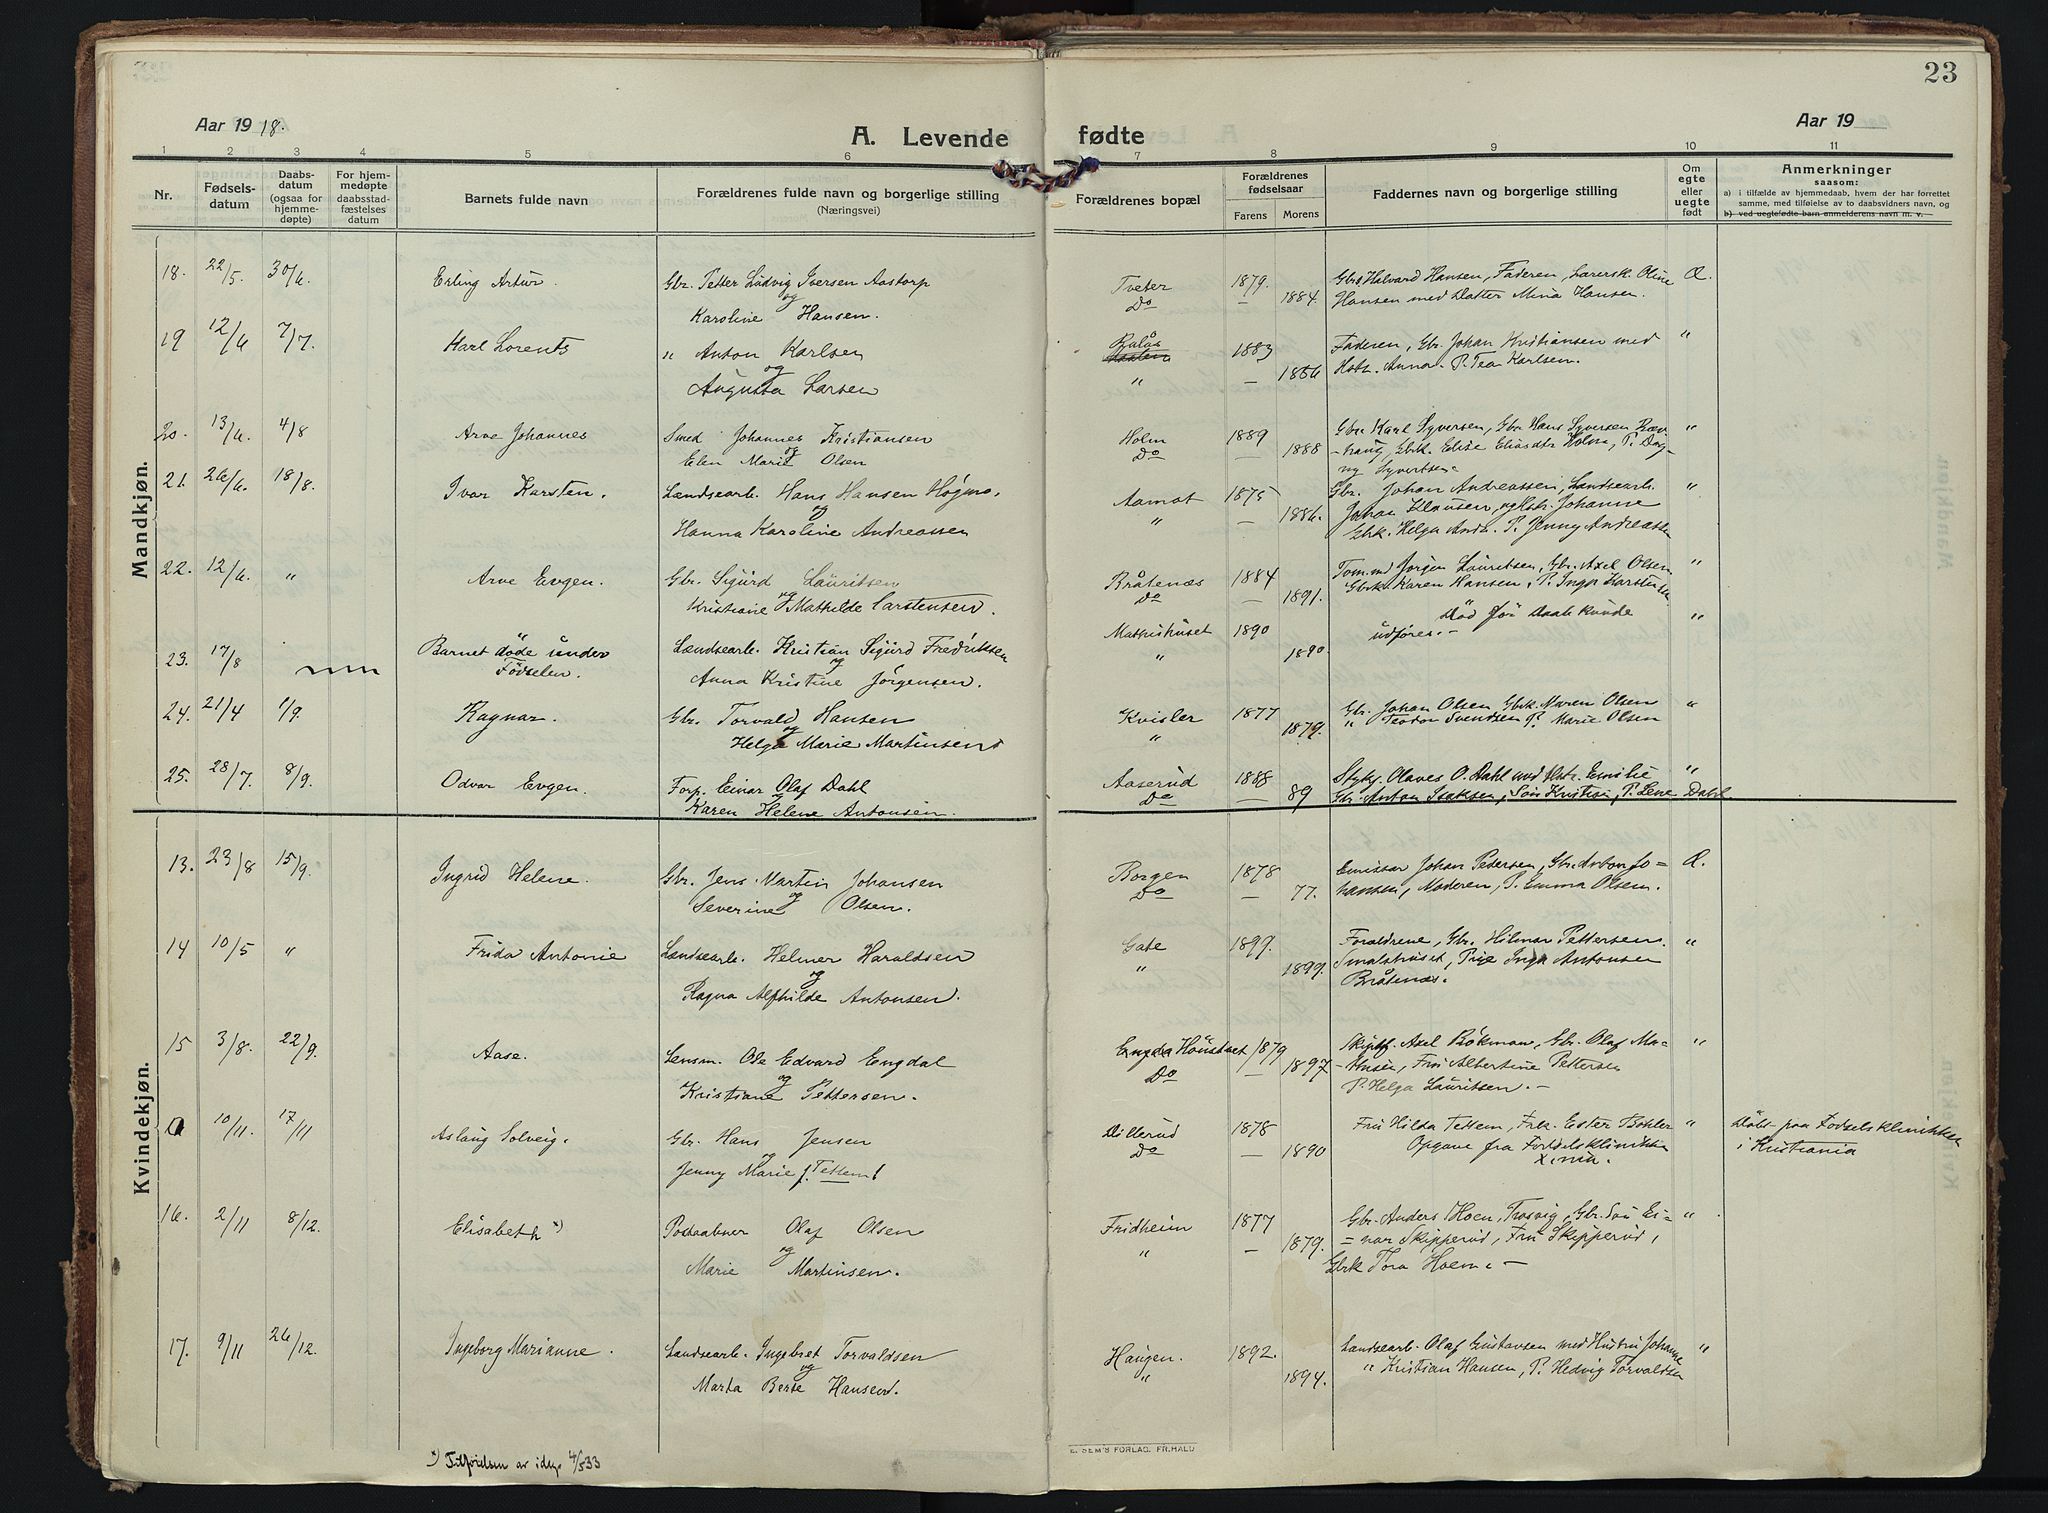 23
Aar 1918.
A. Levende fødte
Aar 19
1 2 3 4 5 6 7 8 9 10 11
Nr.
Fødsels-
datum
Daabs-
datum
(ogsaa for
hjemme-
døpte)
For hjem-
medøpte
daabsstad-
fæstelses
datum
Barnets fulde navn
Forældrenes fulde navn og borgerlige stilling
(Næringsvei)
Forældrenes bopæl
Forældrenes
fødselsaar
Farens Morens
Faddernes navn og borgerlige stilling
Om
egte
eller
uegte
født
Anmerkninger
saasom:
a) i tilfælde av hjemmedaab, hvem der har forrettet
samme, med tilføielse av to daabsvidners navn, og
b) ved uegtefødte barn anmelderens navn m. v.
Mandkjøn.
18. 22/5. 30/6. Erling Artur. Gbr. Petter Ludvig Iversen Aastorp Tveter 1879. Gbr. Halvard Hansen, Faderen, Lærersk. Oline
og Karoline Hansen. Do — 1884. Hansen med Datter Mina Hansen.
19 12/6 7/7. Karl Lorents " Anton Karlsen Bulås 1883 Faderen, Gbr. Johan Kristiansen med "
og Augusta Larsen " — 1886 Hstr. Anna. P. Tea Karlsen.
20. 13/6. 4/8 Arve Johannes Smed Johannes Kristiansen Holm 1889 Gbr. Karl Syversen, Gbr. Hans Syversen "
og Elen Marie Olsen Do — 1888 Gbrk. Elise Eliasdtr Holm, P. Dag-
ny Syvertsen
21. 26/6. 18/8. Ivar Karsten. Landsearb. Hans Hansen Høgmo. Aamot 1875 Gbr. Johan Andreassen, Landsearb. "
og " — 1886. Johan Klausen, og Hstr. Johanne
Hanna Karoline Andreassen Gbrk. Helga Andr. P. Jenny Andreassen
22. 12/6. " Arve Evgen. Gbr. Sigurd Lauritsen Bråtenæs 1884 Tom.md Jørgen Lauritsen, Gbr. Axel Olsen "
og Kristiane Mathilde Carstensen. Do — 1891. Gbrk. Karen Hansen, P. Inga Karstensen
23. 17/8 Barnet døde under Landsearb. Kristian Sigurd Fredriksen Mathishuset 1890 Død før Daab kunde "
Fødselen. og Anna Kristine Jørgensen. " 1890. udføres.
24. 21/4 1/9. Ragnar. Gbr. Torvald Hansen Kvisler 1877 Gbr. Johan Olsen Gbrk. Maren Olsen "
og Helga Marie Martinsen " — 1879. " Teodor Svendsen P. Marie Olsen
25. 28/7. 8/9. Odvar Evgen. Forp. Einar Olaf Dahl Aaserud 1888 Stykg. Olaves O. Dahl med Hstr. Emilie "
Karen Helene Antonsen. Do — 89 Gbr. Anton Isaksen, Søn Kristian, P. Lene Dahl
Kvindekjøn.
13. 23/8 15/9. Ingrid Helene. Gbr. Jens Martin Johansen Borgen 1878 Emissær Johan Pedersen, Gbr. Anton Jo-
og Severine Olsen. Do — 77. hansen, Moderen, P. Emma Olsen.
14 10/5 " Frida Antonie Landsearb. Helmer Haraldsen Gate 1899. Forældrene, Gbr. Hilmar Pettersen "
og " 1899. Smalshuset, Pige Inga Antonsen
Ragna Alfhilde Antonsen. Bråtenæs.
15 3/8. 22/9. Aase. Lensm. Ole Edvard Engdal Engdal 1879 Skipsf. Axel Bökman, Gbr. Olaf Ma- "
og Do — 1897 thisen, Fru Albertine Pettersen
Kristiane Pettersen. P. Helga Lauritsen.
10/11. 17/11 Aslaug Solveig. Gbr. Hans Jensen Dillerud 1878 Fru Hilda Tettem, Frk. Ester Bøhler " Døbt paa Fødselsklinikken
og Do — 1890 Opgave fra Fødselsklinikken i Kristiania
Jenny Marie f. Tettem Xania.
16. 2/11 8/12. Elisabeth *) Postaabner Olaf Olsen Fridheim 1877 Gbr. Anders Hoen, Trosvig, Gbr. Søn Ei= "
og " — 1879. =nar Skipperud, Fru Skipperud,
Marie Martinsen. Gbrk Tora Hoen.
17. 9/11 26/12. Ingeborg Marianne. Landsearb. Ingebret Torvaldsen Haugen. 1892. Landsearb. Olaf Gustavsen med Hustru Johanne "
og " 1894. " Kristian Hansen, P. Hedvig Torvaldsen
Marta Berte Hansen.
*) Tilføielsen av idag 4/5 33
E. SEM'S FORLAG. FR.HALD